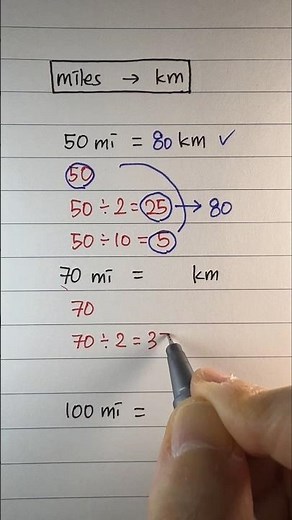 miles → km
50 mi = 80 km ✓
50
50 ÷ 2 = 25 → 80
50 ÷ 10 = 5
70 mi = km
70
70 ÷ 2 = 3
100 mi =